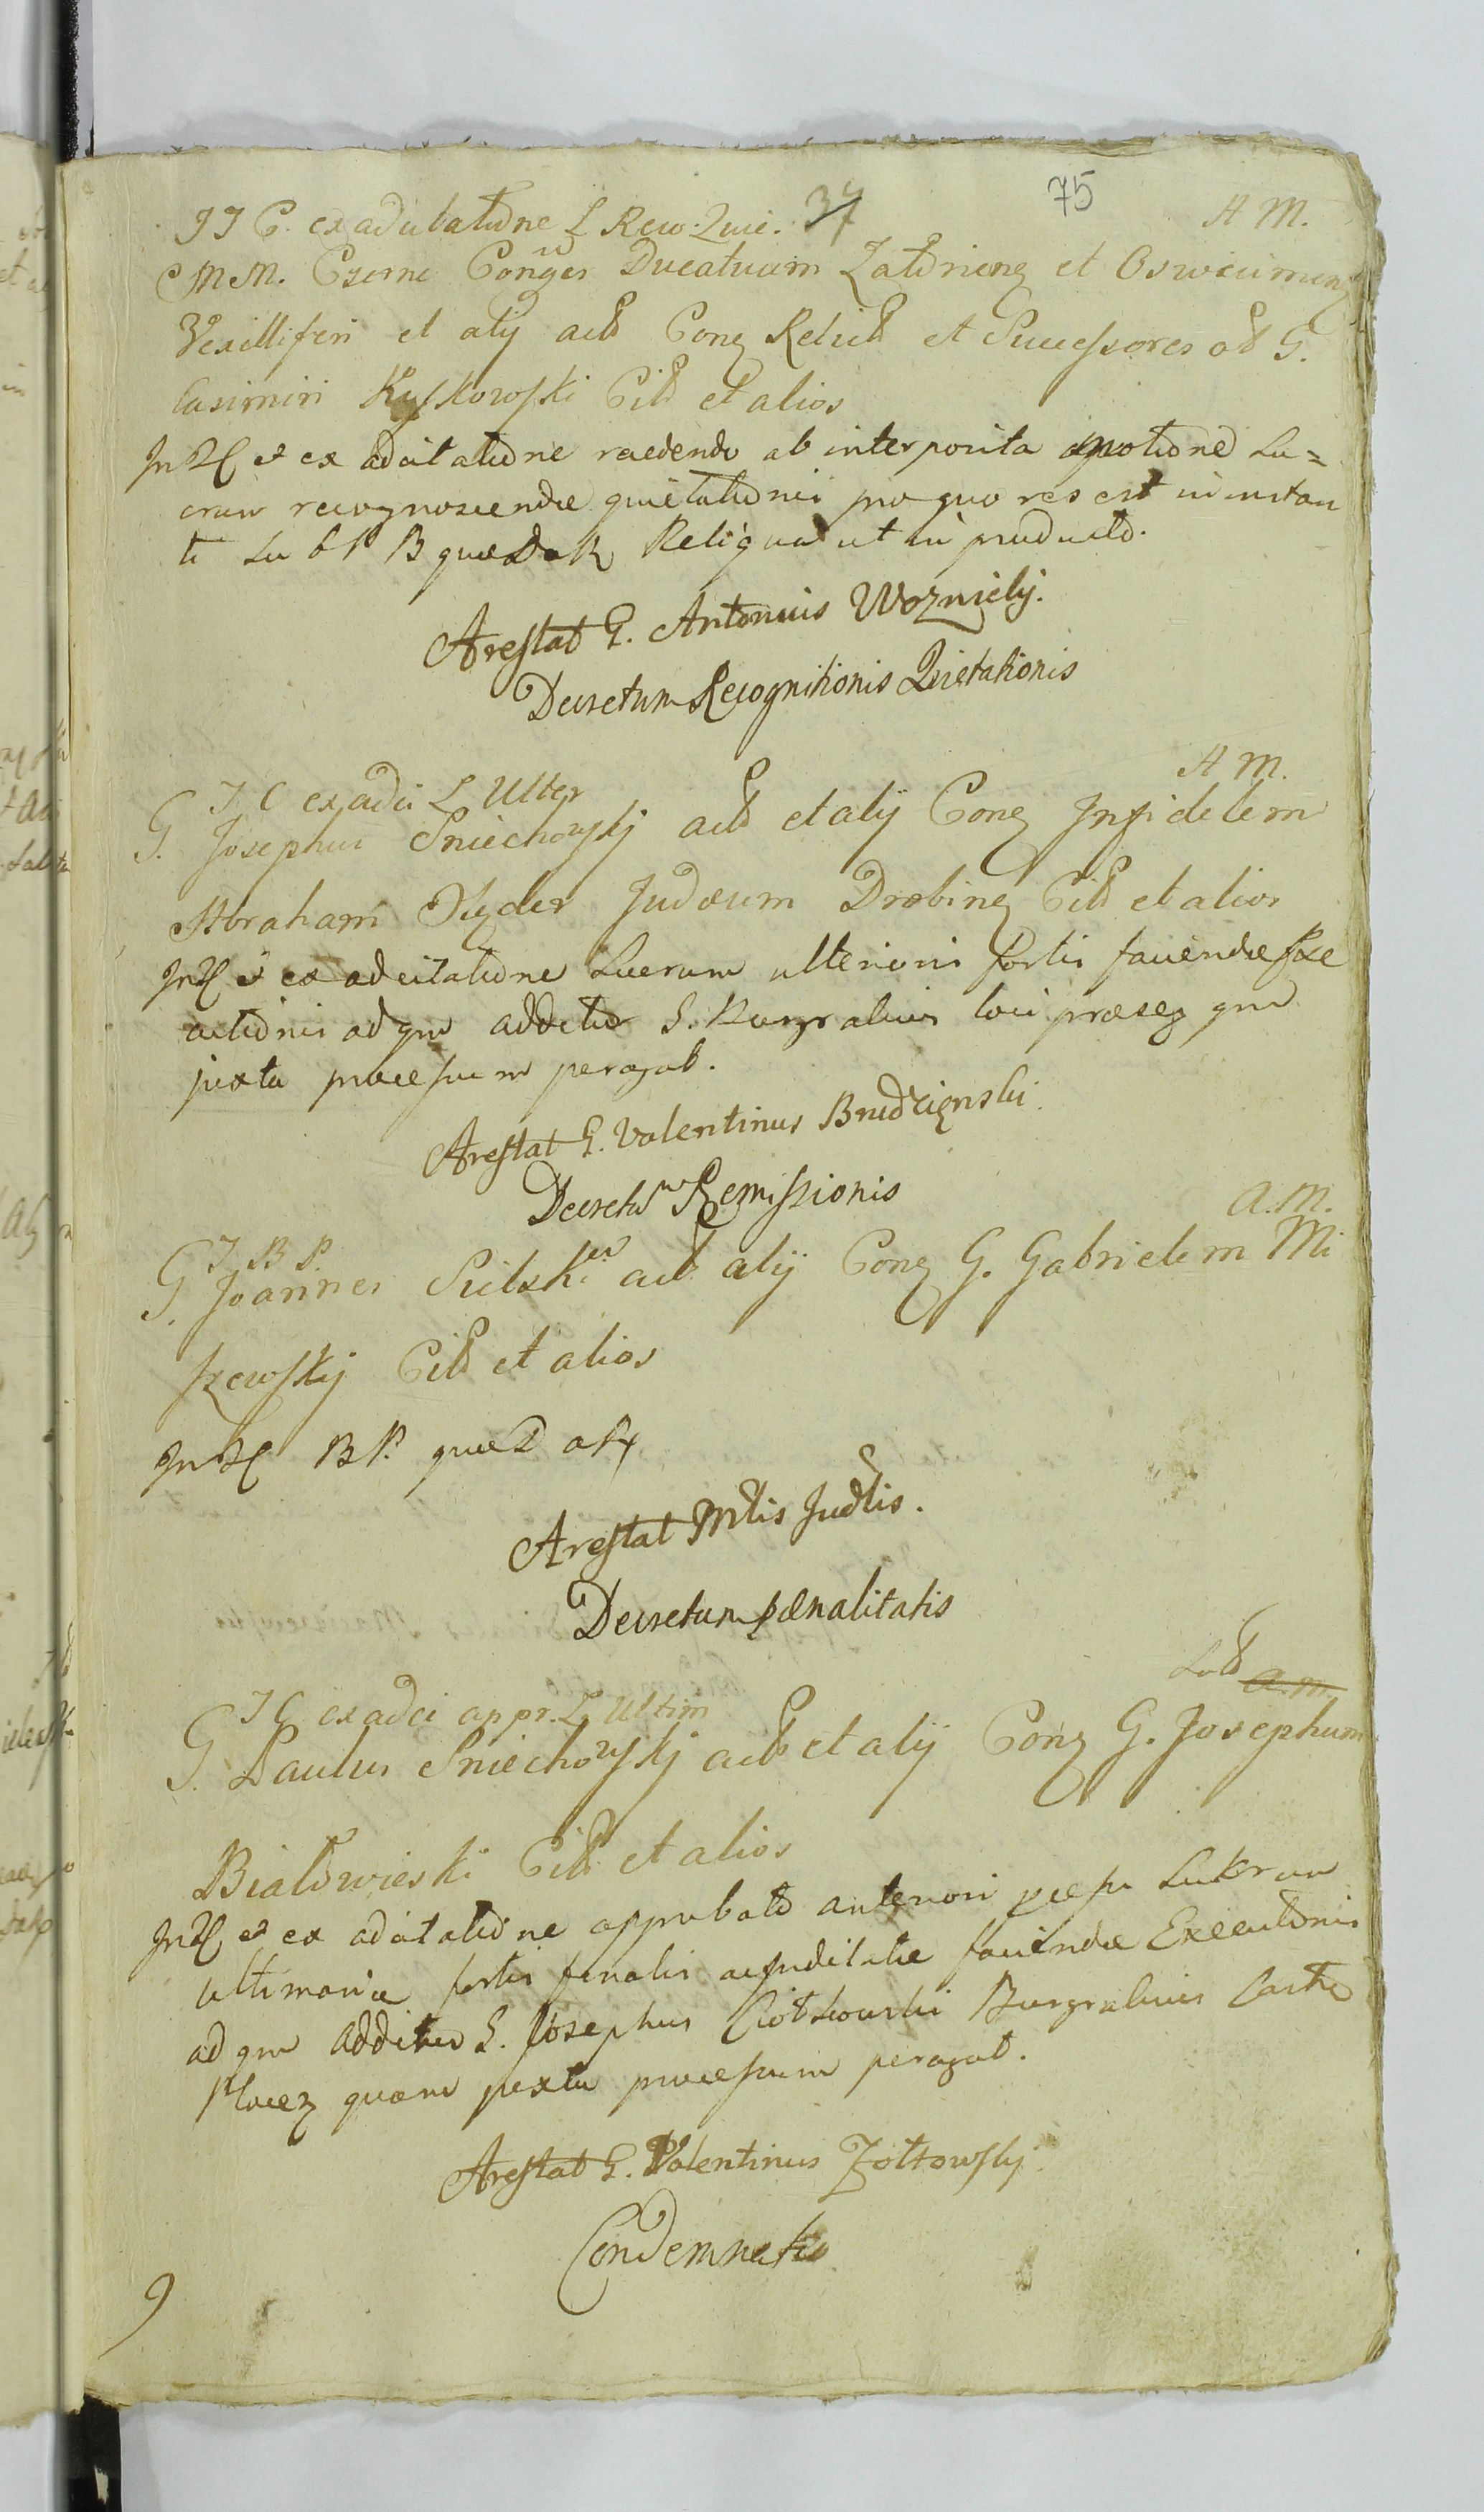 75
37
I I C. ex adcitatione L Rew. Quie. A M.
M M. Czerne Conges Ducatuum Zatoriens et Oswiecimens
Vexilliferi et alij act Conq Relict et Successores ol G.
Casimiri Kyskowski Cit et alios
In Tl et ex adcitatione recedendo ab interposita motione Lu=
crum recognoscendae quietationis pro quo res est in instan
ti Lu b P B quae D a R Reliqua ut in producto.
Arestat G. Antonius Woznicky.
Decretum Recognitionis Quietationis
I C ex adci L Ulter A M.
G. Josephus Sniechowskj act et alij Conq Infidelem
Abraham Judaeum Drobinens Cit et alios
In Tl et ex adcitatione Lucrum ulterioris fortis faciendae Exe
cutionis ad qm additur G. Burgrabius loci praesens qm
juxta processum peragat.
Arestat G. Valentinus Brudzienski.
Decretum Remissionis
I B P. A. M.
G. Joannes Sulski act alij Conq G. Gabrielem Mi
szewskij Cit et alios
In Tl B P. quae D a R
Arestat Mtis Judlis.
Decretum paenalitatis
I C ex adci appr. L Ultim A. M.
G. Paulus Sniechowskj act et alij Conq G. Josephum
Bialowieski Cit et alios
In Tl et ex adcitatione approbato anteriori Lukrum
ultimariae fortis finalis faciendae Executionis
ad qm additur G. Josephus Ciolkowski Burgrabius Castr
Plocens quam juxta processum peragat.
Arestat G. Valentinus Zoltowskj.
Condemnatio
9